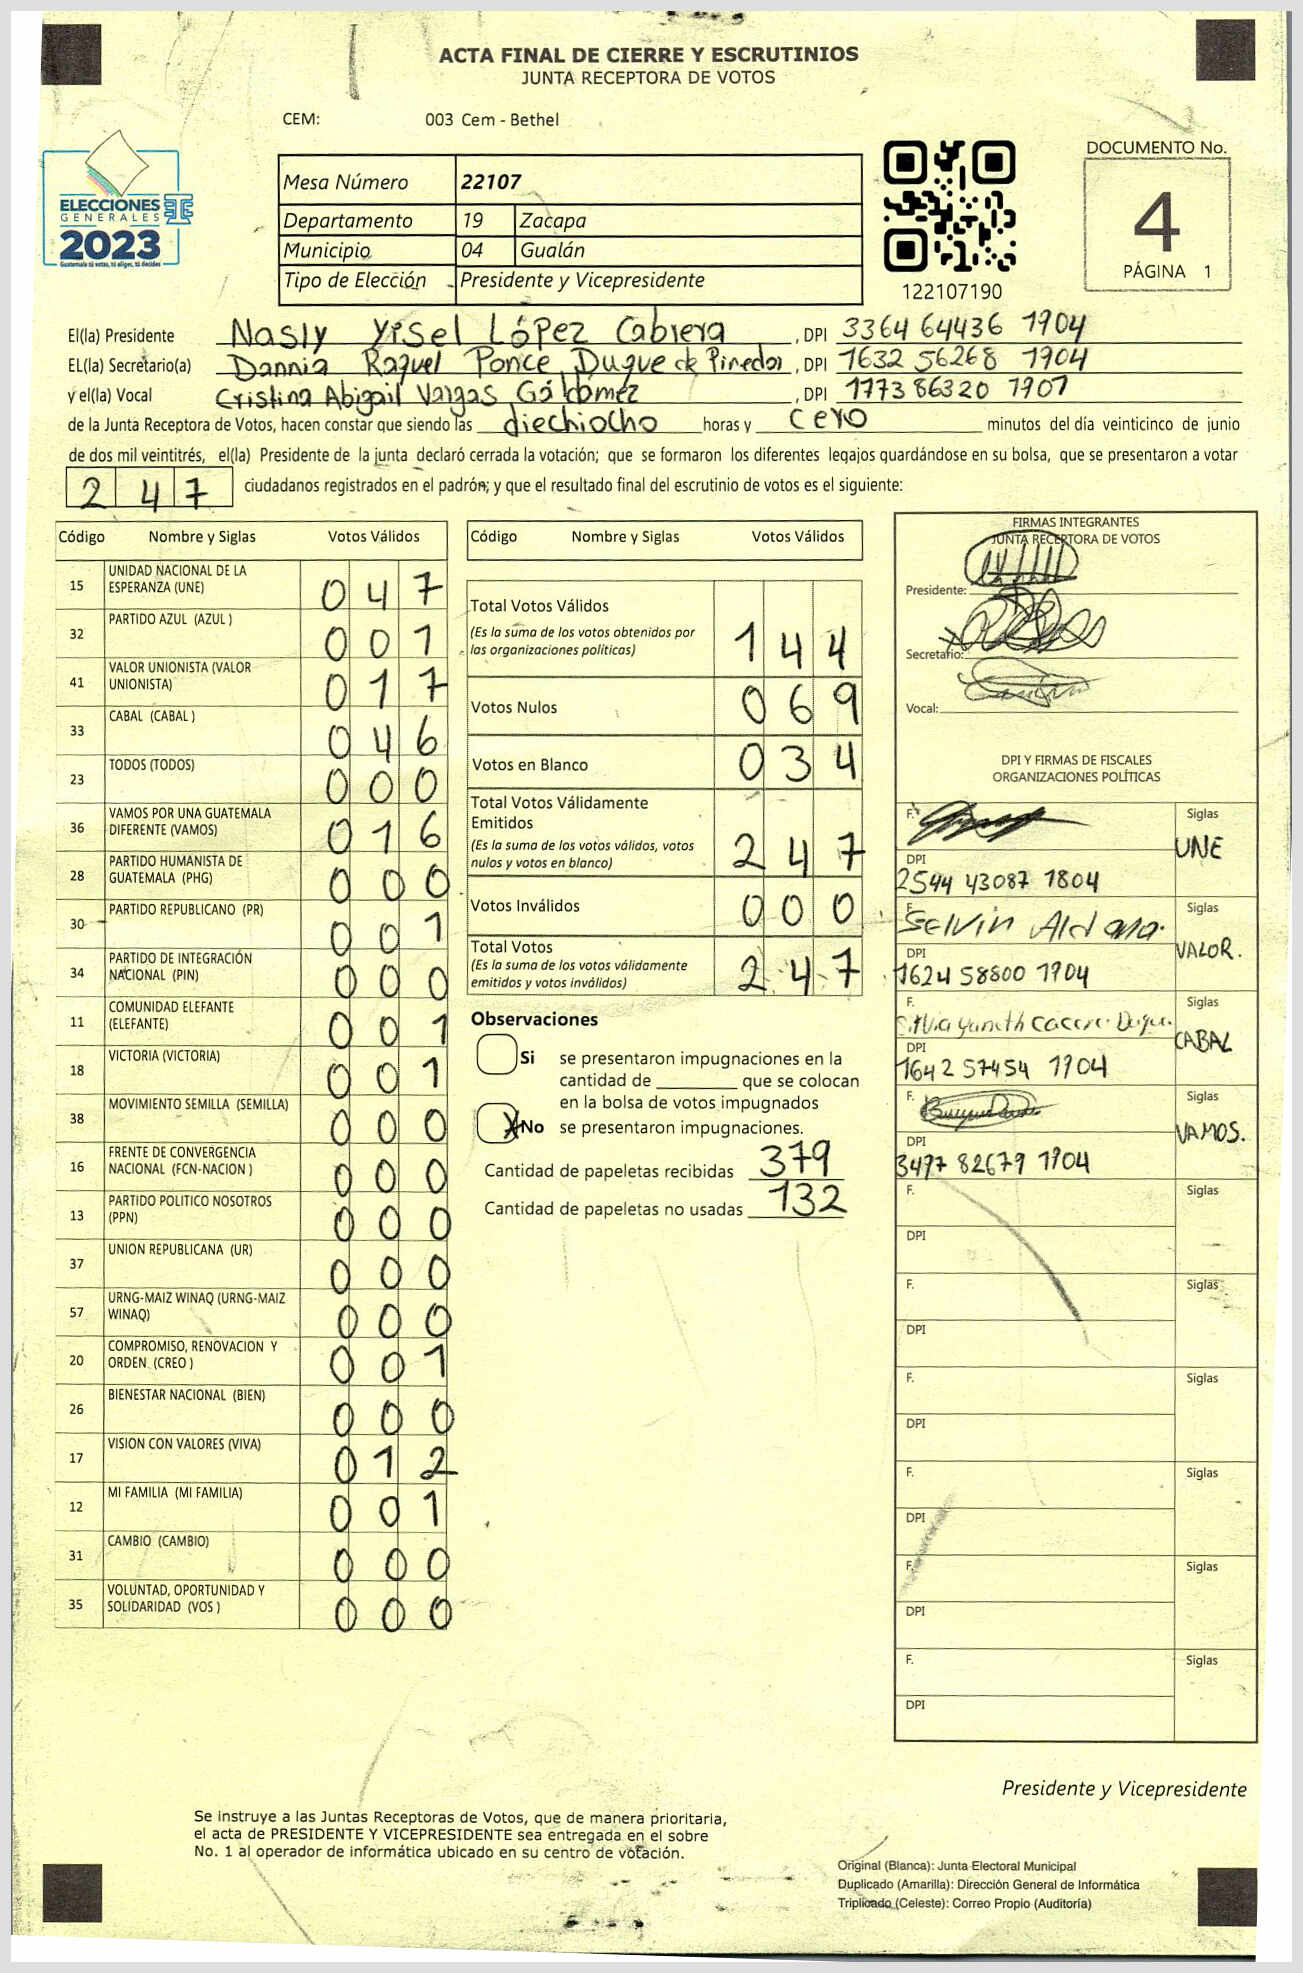 ACTA FINAL DE CIERRE Y ESCRUTINIOS
JUNTA RECEPTORA DE VOTOS
CEM: 003 Cem - Bethel
ELECCIONES
GENERALES
2023
Guatemala tú votas, tú eliges, tú decides
Mesa Número 22107
Departamento 19 Zacapa
Municipio 04 Gualán
Tipo de Elección Presidente y Vicepresidente
122107190
DOCUMENTO No.
4
PÁGINA 1
El(la) Presidente Nasly Yisel López Cabrera, DPI 3364 64436 1904
EL(la) Secretario(a) Dannia Raquel Ponce Duque de Pineda, DPI 1632 56268 1904
y el(la) Vocal Cristina Abigail Vargas, DPI 1773 86320 1907
de la Junta Receptora de Votos, hacen constar que siendo las diechiocho horas y cero minutos del día veinticinco de junio
de dos mil veintitrés, el(la) Presidente de la junta declaró cerrada la votación; que se formaron los diferentes legajos guardándose en su bolsa, que se presentaron a votar
2 4 7 ciudadanos registrados en el padrón; y que el resultado final del escrutinio de votos es el siguiente:
Código Nombre y Siglas Votos Válidos
15 UNIDAD NACIONAL DE LA ESPERANZA (UNE) 0 4 7
32 PARTIDO AZUL (AZUL ) 0 0 1
41 VALOR UNIONISTA (VALOR UNIONISTA) 0 1 7
33 CABAL (CABAL ) 0 4 6
23 TODOS (TODOS) 0 0 0
36 VAMOS POR UNA GUATEMALA DIFERENTE (VAMOS) 0 1 6
28 PARTIDO HUMANISTA DE GUATEMALA (PHG) 0 0 0
30 PARTIDO REPUBLICANO (PR) 0 0 1
34 PARTIDO DE INTEGRACIÓN NACIONAL (PIN) 0 0 0
11 COMUNIDAD ELEFANTE (ELEFANTE) 0 0 1
18 VICTORIA (VICTORIA) 0 0 1
38 MOVIMIENTO SEMILLA (SEMILLA) 0 0 0
16 FRENTE DE CONVERGENCIA NACIONAL (FCN-NACION ) 0 0 0
13 PARTIDO POLITICO NOSOTROS (PPN) 0 0 0
37 UNION REPUBLICANA (UR) 0 0 0
57 URNG-MAIZ WINAQ (URNG-MAIZ WINAQ) 0 0 0
20 COMPROMISO, RENOVACION Y ORDEN (CREO ) 0 0 1
26 BIENESTAR NACIONAL (BIEN) 0 0 0
17 VISION CON VALORES (VIVA) 0 1 2
12 MI FAMILIA (MI FAMILIA) 0 0 1
31 CAMBIO (CAMBIO) 0 0 0
35 VOLUNTAD, OPORTUNIDAD Y SOLIDARIDAD (VOS ) 0 0 0
Código Nombre y Siglas Votos Válidos
Total Votos Válidos
(Es la suma de los votos obtenidos por
las organizaciones políticas) 1 4 4
Votos Nulos 0 6 9
Votos en Blanco 0 3 4
Total Votos Válidamente
Emitidos
(Es la suma de los votos válidos, votos
nulos y votos en blanco) 2 4 7
Votos Inválidos 0 0 0
Total Votos
(Es la suma de los votos válidamente
emitidos y votos inválidos) 2 4 7
Observaciones
Si se presentaron impugnaciones en la
cantidad de ________ que se colocan
en la bolsa de votos impugnados
X No se presentaron impugnaciones.
Cantidad de papeletas recibidas 379
Cantidad de papeletas no usadas 132
FIRMAS INTEGRANTES
JUNTA RECEPTORA DE VOTOS
Presidente:
Secretario:
Vocal:
DPI Y FIRMAS DE FISCALES
ORGANIZACIONES POLÍTICAS
F. Siglas
UNE
DPI
2544 43087 1804
F. Selvin Aldana. Siglas
VALOR.
DPI
1624 58800 1904
F. Silvia Yaneth Siglas
CABAL
DPI
1642 57454 1904
F. Siglas
VAMOS.
DPI
3497 82679 1904
F. Siglas
DPI
F. Siglas
DPI
F. Siglas
DPI
F. Siglas
DPI
F. Siglas
DPI
F. Siglas
DPI
Presidente y Vicepresidente
Se instruye a las Juntas Receptoras de Votos, que de manera prioritaria,
el acta de PRESIDENTE Y VICEPRESIDENTE sea entregada en el sobre
No. 1 al operador de informática ubicado en su centro de votación.
Original (Blanca): Junta Electoral Municipal
Duplicado (Amarilla): Dirección General de Informática
Triplicado (Celeste): Correo Propio (Auditoría)